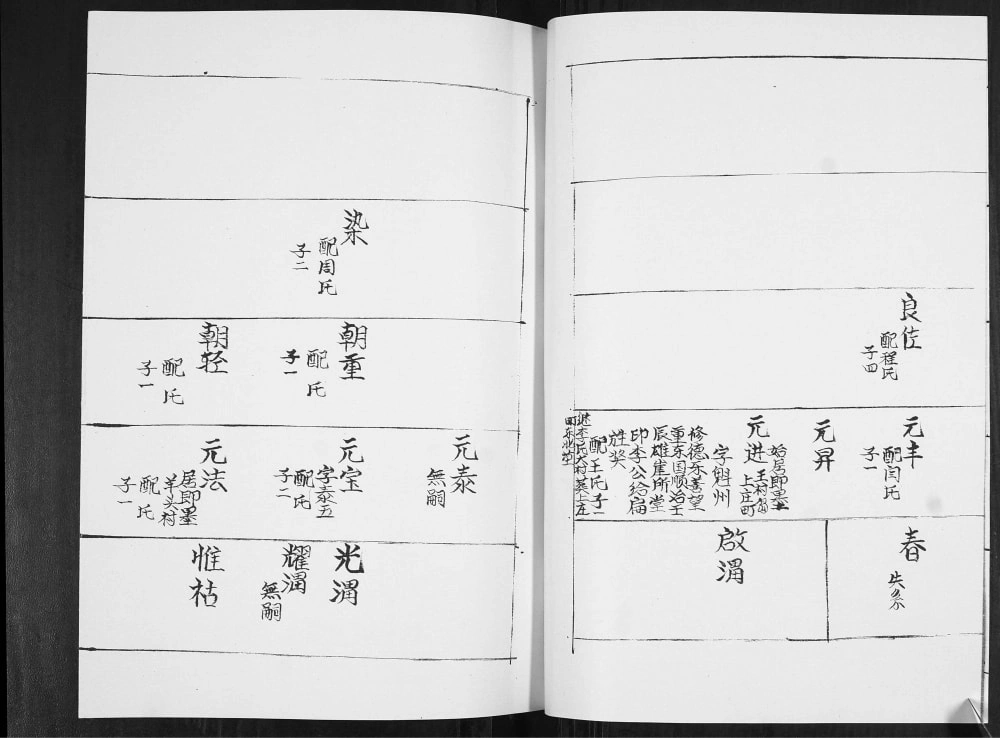 良佐
配程氏
子四
元丰
配闫氏
子一
元昇
元进
始居即墨
王村
上庄町
字魁州
修德乐善望
重东国顺治壬
辰雄崖所堂
印李公给扁
旌奖
配王氏子一
春
失系
啟渭
染
配周氏
子二
朝重
配 氏
子一
朝轻
配 氏
子一
元泰
無嗣
元宝
字泰五
配 氏
子二
元法
居即墨
羊头村
配 氏
子一
光渭
耀渭
無嗣
惟祜